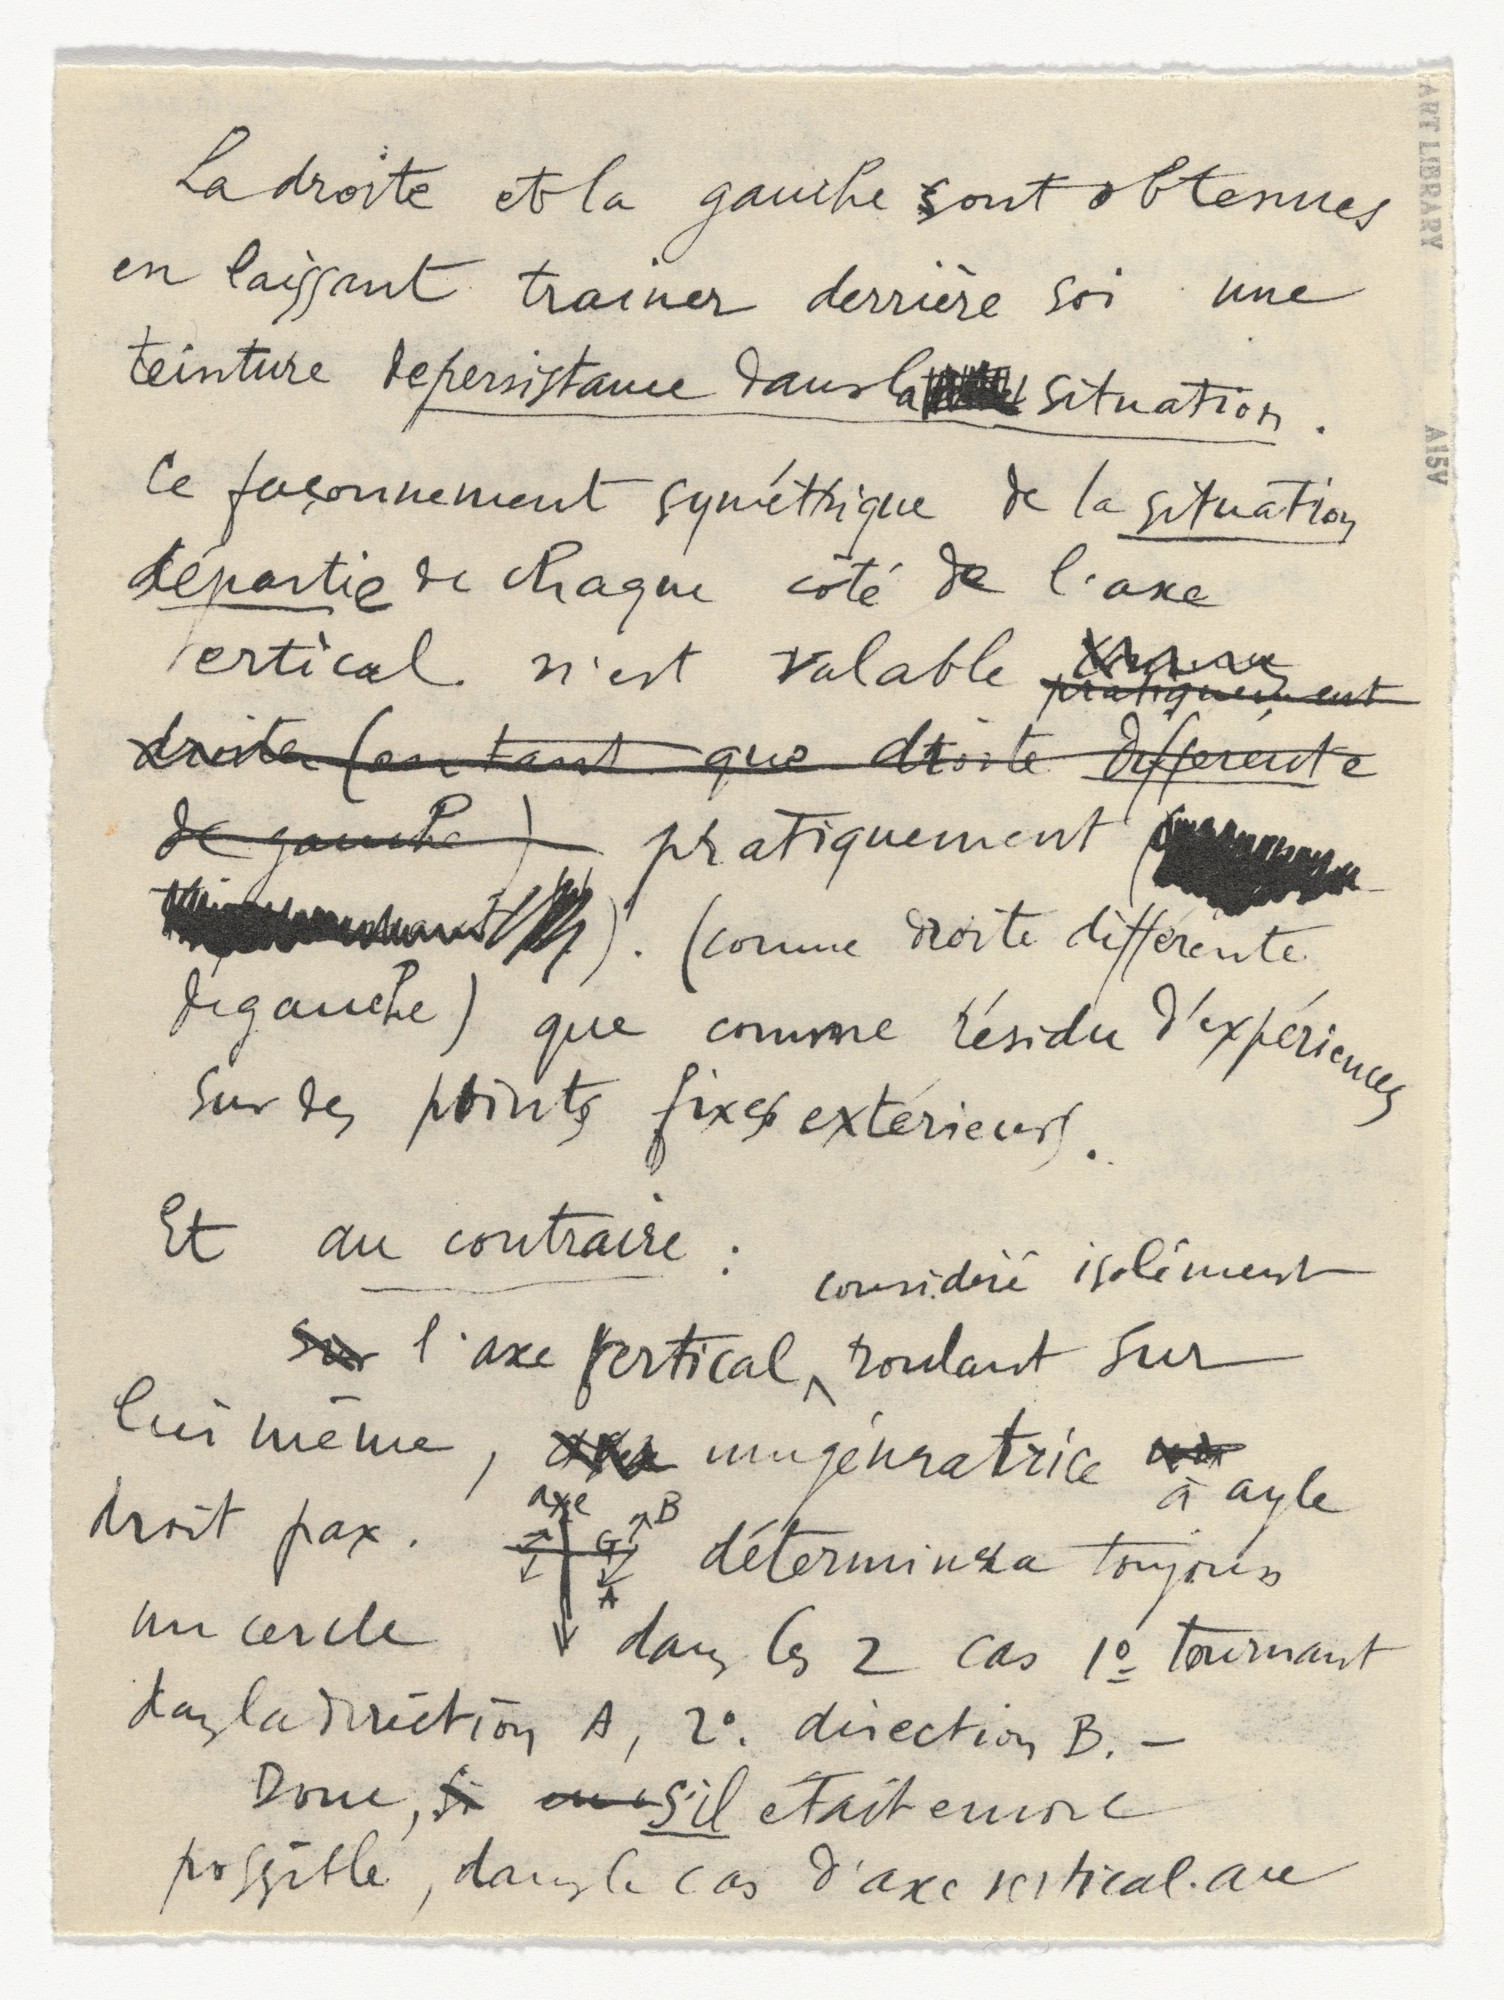 La droite et la gauche sont obtenues
en laissant trainer derrière soi une
teinture de persistance dans la situation.
Ce façonnement symétrique de la situation
répartie de chaque côté de l'axe
vertical n'est valable pratiquement
droite (en tant que droite différente
de gauche) pratiquement (
). (comme droite différente
de gauche) que comme résidu d'expériences
sur des points fixes extérieurs.
Et au contraire :
considéré isolément
sur l'axe vertical, roulant sur
lui même, une génératrice
à angle
droit par ex. déterminera toujours
axe
B
G
A
un cercle dans les 2 cas 1º tournant
dans la direction A, 2º. direction B. —
Donc, si s'il était encore
possible, dans le cas d'axe vertical. au
ART LIBRARY
A15V